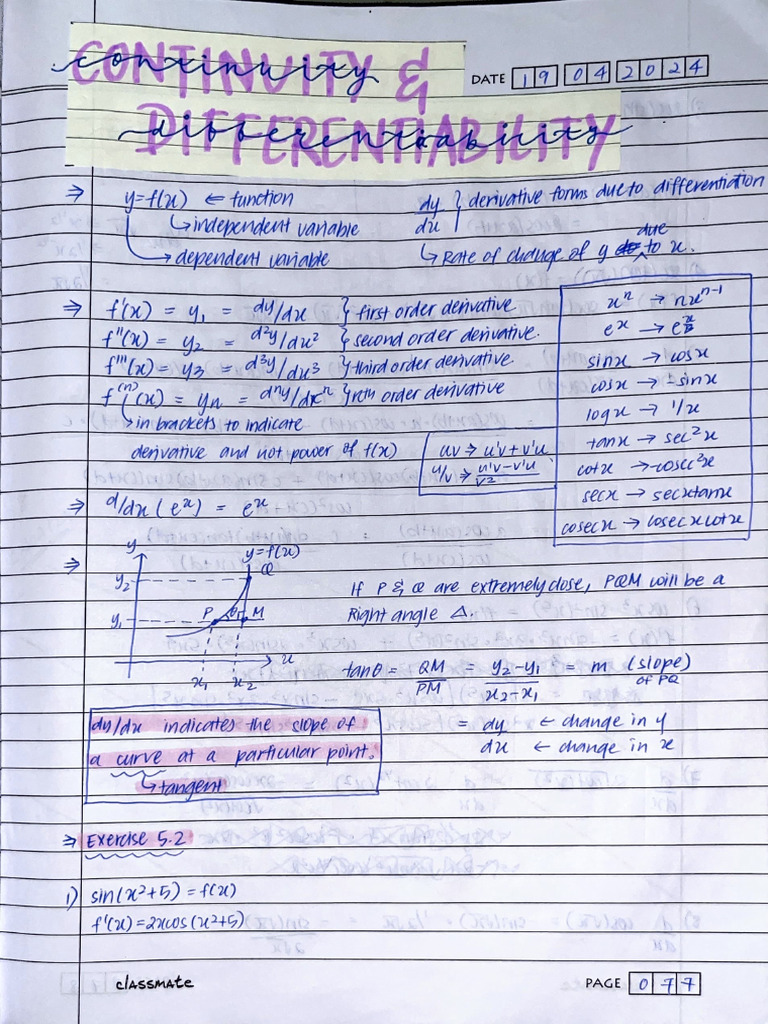 CONTINUITY &
continuity
DIFFERENTIABILITY
differentiability
DATE 19 04 2024
⇒ y=f(x) ← function
↳ independent variable
↳ dependent variable
dy/dx } derivative forms due to differentiation
↳ Rate of change of y due to x.
⇒ f'(x) = y₁ = dy/dx } first order derivative
f''(x) = y₂ = d²y/dx² } second order derivative.
f'''(x) = y₃ = d³y/dx³ } third order derivative.
f⁽ⁿ⁾(x) = yₙ = dⁿy/dxⁿ } nth order derivative
↳ in brackets to indicate
derivative and not power of f(x)
uv ⇒ u'v + v'u
u/v ⇒ u'v - v'u / v²
xⁿ → nxⁿ⁻¹
eˣ → eˣ
sinx → cosx
cosx → -sinx
logx → 1/x
tanx → sec²x
cotx → -cosec²x
secx → secxtanx
cosecx → cosecxcotx
⇒ d/dx (eˣ) = eˣ
⇒ y
y=f(x)
y₂ Q
y₁ P θ M
x
x₁ x₂
If P & Q are extremely close, PQM will be a
Right angle Δ.
tanθ = QM/PM = y₂-y₁/x₂-x₁ = m (slope) of PQ
= dy ← change in y
dx ← change in x
dy/dx indicates the slope of
a curve at a particular point.
↳ tangent
⇒ Exercise 5.2
1) sin(x²+5) = f(x)
f'(x) = 2xcos(x²+5)
classmate
PAGE 077